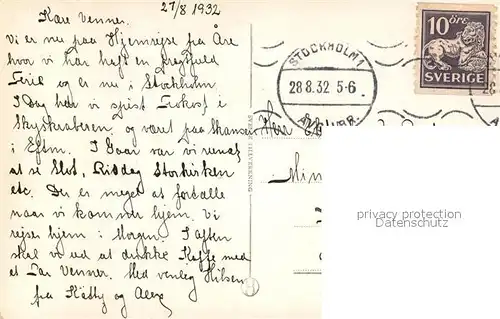 27/8 1932
Kære Venner.
Vi er nu paa Hjemrejse fra Åre
hvor vi har haft en pragtfuld
Ferie og er nu i Stockholm.
I Dag har vi spist Frokost i
Skyskraberen, og været paa Skansen
i Eftm. I Gaar var vi rundt
at se Slot, Rigsdag Storkirken
etc. Der er meget at fortælle
naar vi kommer hjem. Vi
rejser hjem i Morgen. I aften
skal vi ud at drikke Kaffe med
et Par Venner. Med venlig Hilsen
fra Kätty og Alex
STOCKHOLM 1
28.8.32 5-6
AVGÅR.
10 ÖRE
SVERIGE
28
Herr
Min
privacy protection
Datenschutz